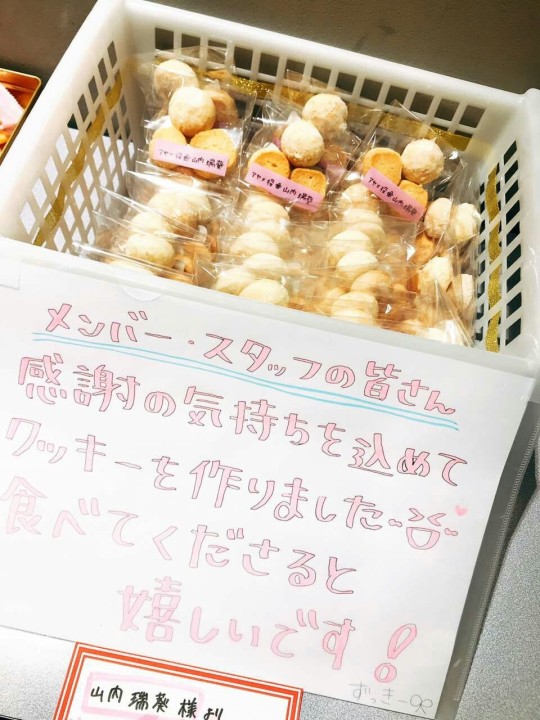 アヤメ役山内瑞葵
アヤメ役山内瑞葵
アヤメ役山内瑞葵
メンバー・スタッフの皆さん
感謝の気持ちを込めて
クッキーを作りました
食べてくださると
嬉しいです!
ずっきー
山内瑞葵様より